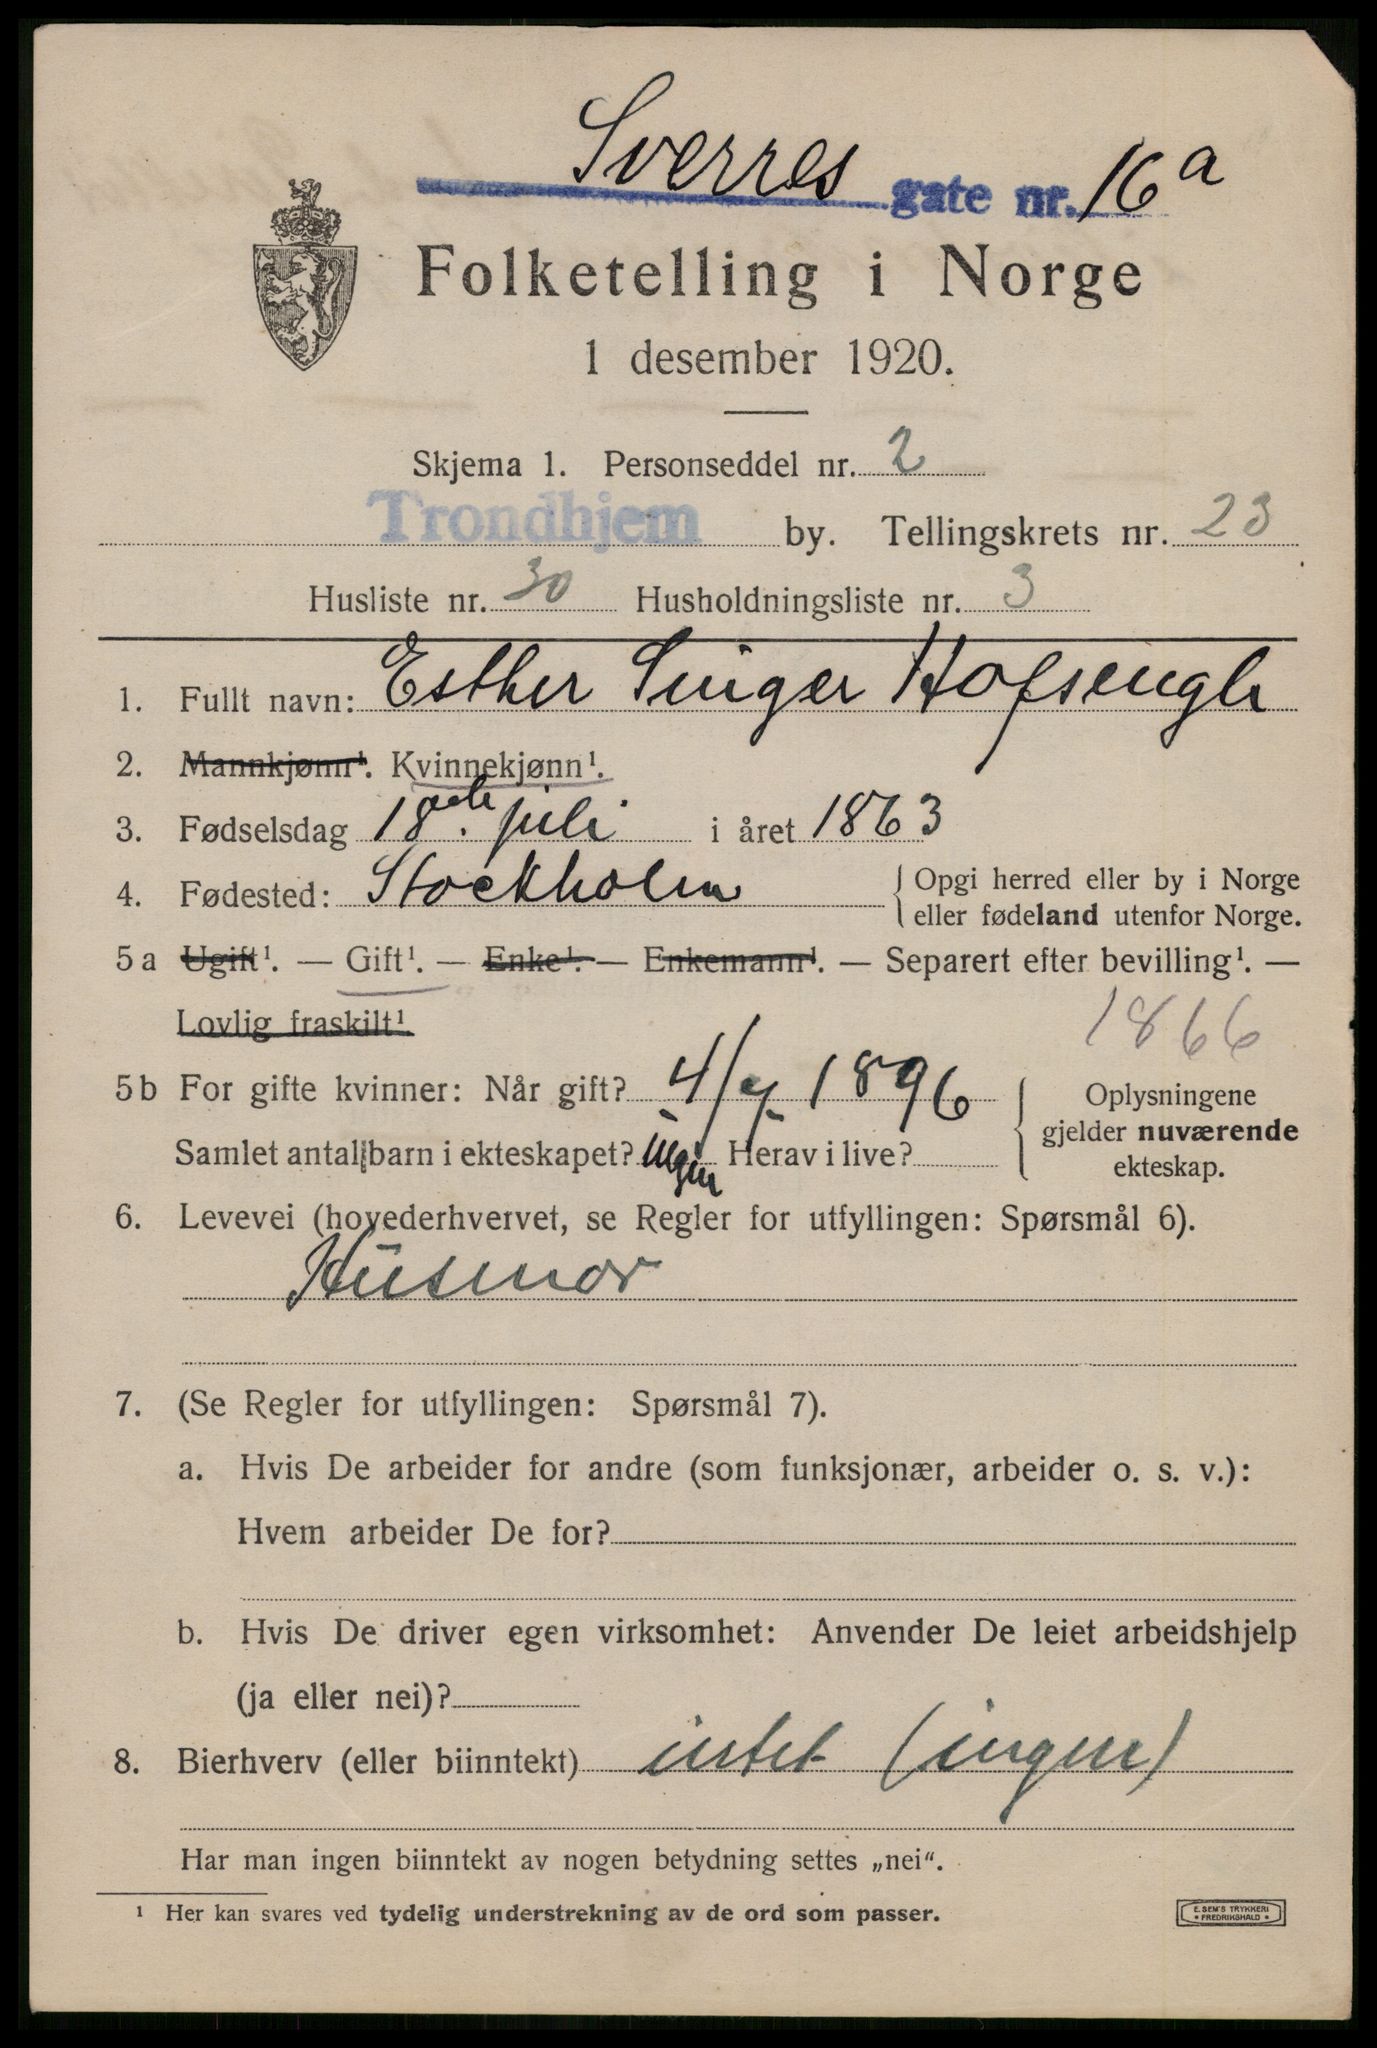 Sverres gate nr. 16a
Folketelling i Norge
1 desember 1920.
Skjema 1. Personseddel nr. 2
Trondhjem by. Tellingskrets nr. 23
Husliste nr. 30 Husholdningsliste nr. 3
1. Fullt navn: Esther Singer Hofsengh
2. Mannkjønn¹. Kvinnekjønn¹.
3. Fødselsdag 18de juli i året 1863
4. Fødested: Stockholm {Opgi herred eller by i Norge
eller fødeland utenfor Norge.
5 a Ugift¹. — Gift¹. — Enke¹. — Enkemann¹. — Separert efter bevilling¹. —
Lovlig fraskilt¹ 1866
5 b For gifte kvinner: Når gift? 4/7 1896 { Oplysningene
gjelder nuværende
Samlet antal barn i ekteskapet? ingen Herav i live?
ekteskap.
6. Levevei (hovederhvervet, se Regler for utfyllingen: Spørsmål 6).
Husmor
7. (Se Regler for utfyllingen: Spørsmål 7).
a. Hvis De arbeider for andre (som funksjonær, arbeider o. s. v.):
Hvem arbeider De for?
b. Hvis De driver egen virksomhet: Anvender De leiet arbeidshjelp
(ja eller nei)?
8. Bierhverv (eller biinntekt) intet (ingen)
Har man ingen biinntekt av nogen betydning settes „nei“.
¹ Her kan svares ved tydelig understrekning av de ord som passer.
E. SEM'S TRYKKERI
• FREDRIKSHALD •